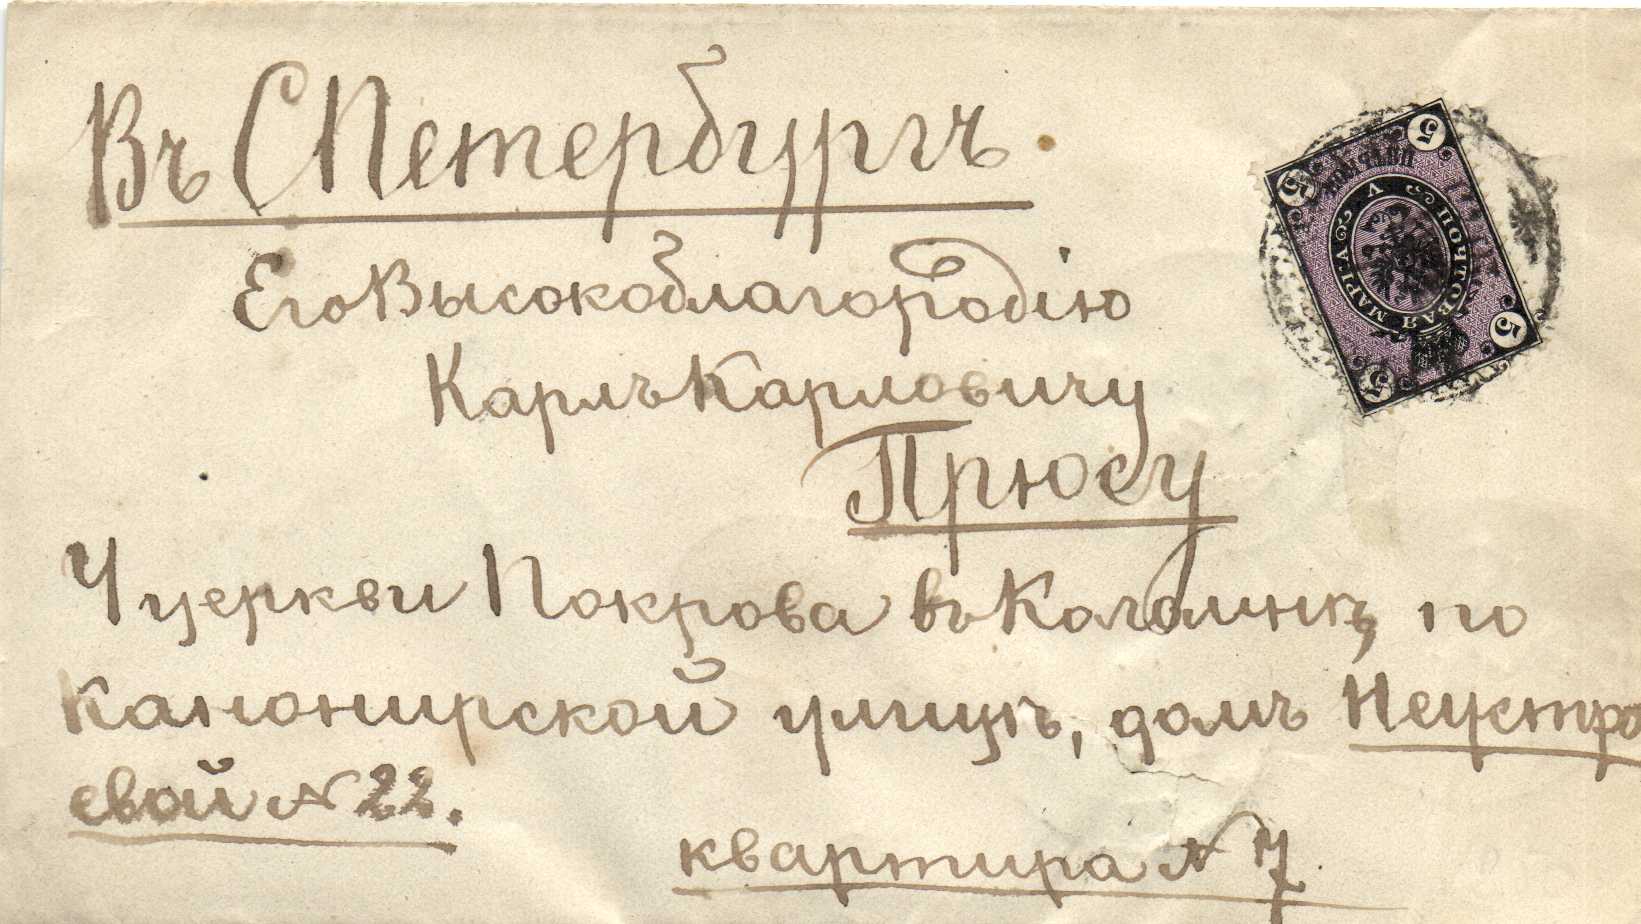 Въ СПетербургъ.
Его Высокоблагородію
Карлъ Карловичу
Прюсу
У церкви Покрова въ Коломнѣ, по
Канонирской улицѣ, домъ Неустро
евой № 22.
квартира № 7
5
5
5
5
ПОЧТОВАЯ МАРКА